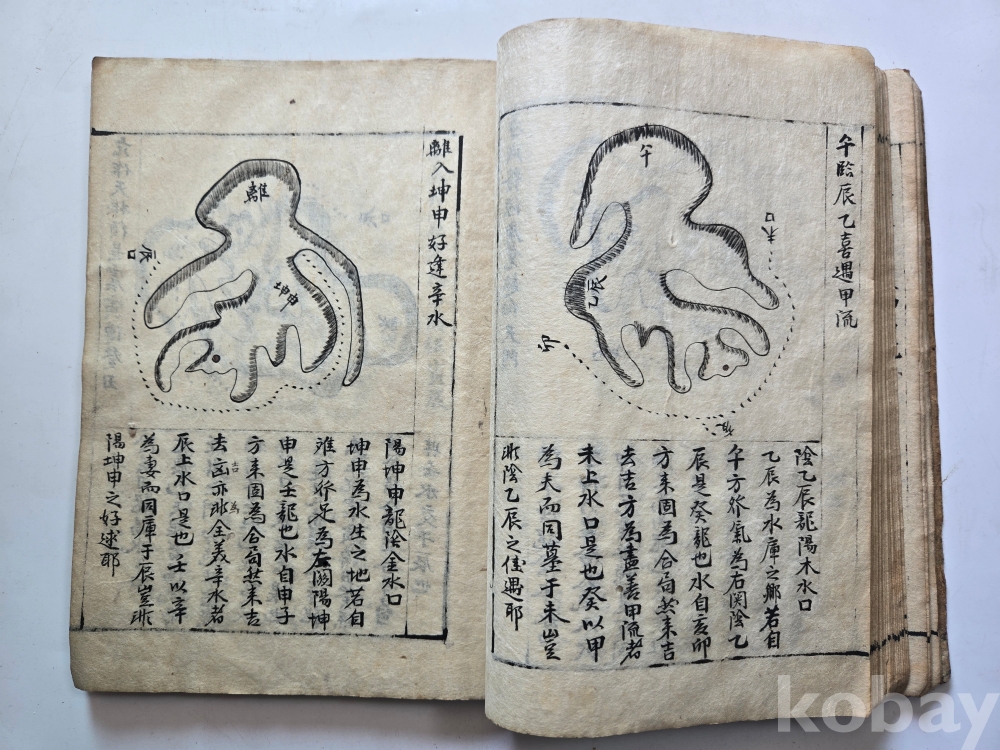 午臨辰乙喜遇甲流
午
乙辰
未口
卯
陰乙辰龍陽木水口
乙辰為水庫之鄉若自
午方發氣為右関陰乙
辰是癸龍也水自亥卯
方来固為合局然来吉
去吉方為盡善甲流者
未上水口是也癸以甲
為夫而同墓于未豈
非陰乙辰之佳遇耶
離入坤申好逢辛水
離
坤申
辰口
陽坤申龍陰金水口
坤申為水生之地若自
離方發足為左関陽坤
申是壬龍也水自申子
方来固為合局然来吉
去凶亦非全美辛水者
吉為
辰上水口是也壬以辛
為妻而同庫于辰豈非
陽坤申之好逑耶
kobay